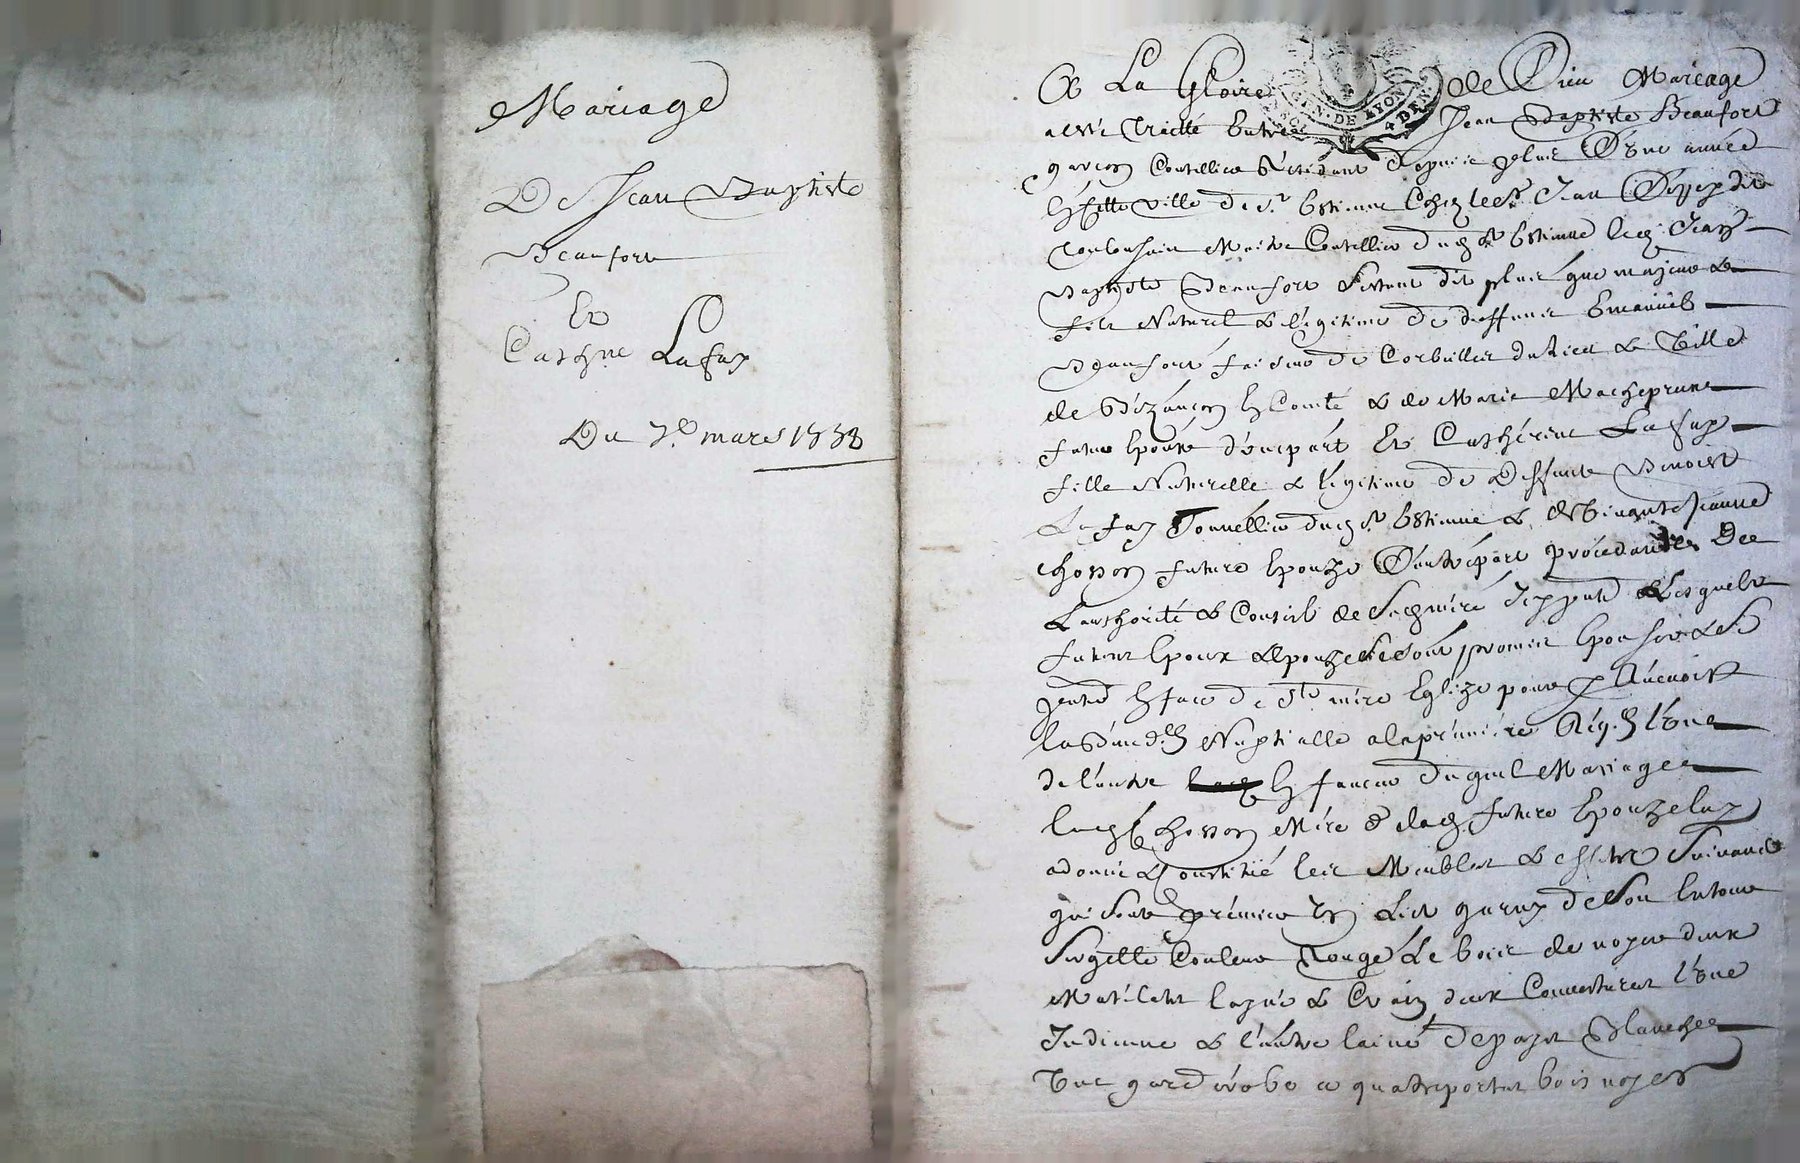 Mariage
De Jean Baptiste
Beaufort
Et
Cathne Lafay
Du 7.e mars 1738
A La Gloire de Dieu Mariage
a esté traitté Entre Jean Baptiste Beaufort
garçon Coutellier Residant depuis plus D'une année
En cette ville de St Estienne Chez le Sr Jean
Maitre Coutellier dud St Estienne led Jean
Baptiste Beaufort Se disant plus que majeur &
fils Naturel & légitime de deffunt Emanüel
Beaufort faiseur de Corbeilles du lieu & Ville
de Bézançon En Comté & de Marie Macheprune
futur Epoux d'une part Et Cathérine Lafay
fille Naturelle & légitime de Deffunt Benoist
Lafay Tonnellier dud St Estienne & Vivante Jeanne
chosson future Epouze D'autre part procedants De
L'authorité & Conseil de Sad mère Lesquels
futurs Epoux & Epouze se sont promis Epouser &
En face de Ste mère Eglize pour y Recevoir
la Béned.on Nuptialle a la première Réq.on l'une
de l'autre En faveur duquel Mariage
lad chosson Mère de lad future Epouze luy
a donné & Constitué les Meubles & effets Suivants
qui Sont premier Un Lict garny de Son Entour
Sergette Couleur Rouge le bois de noyer deux
Matelats layne & Crain deux Couvertures l'une
Indienne & l'autre laine de pays Blanche
Une garderobe a quatre portes bois noyer
GEN. DE LYON
4 DEN.